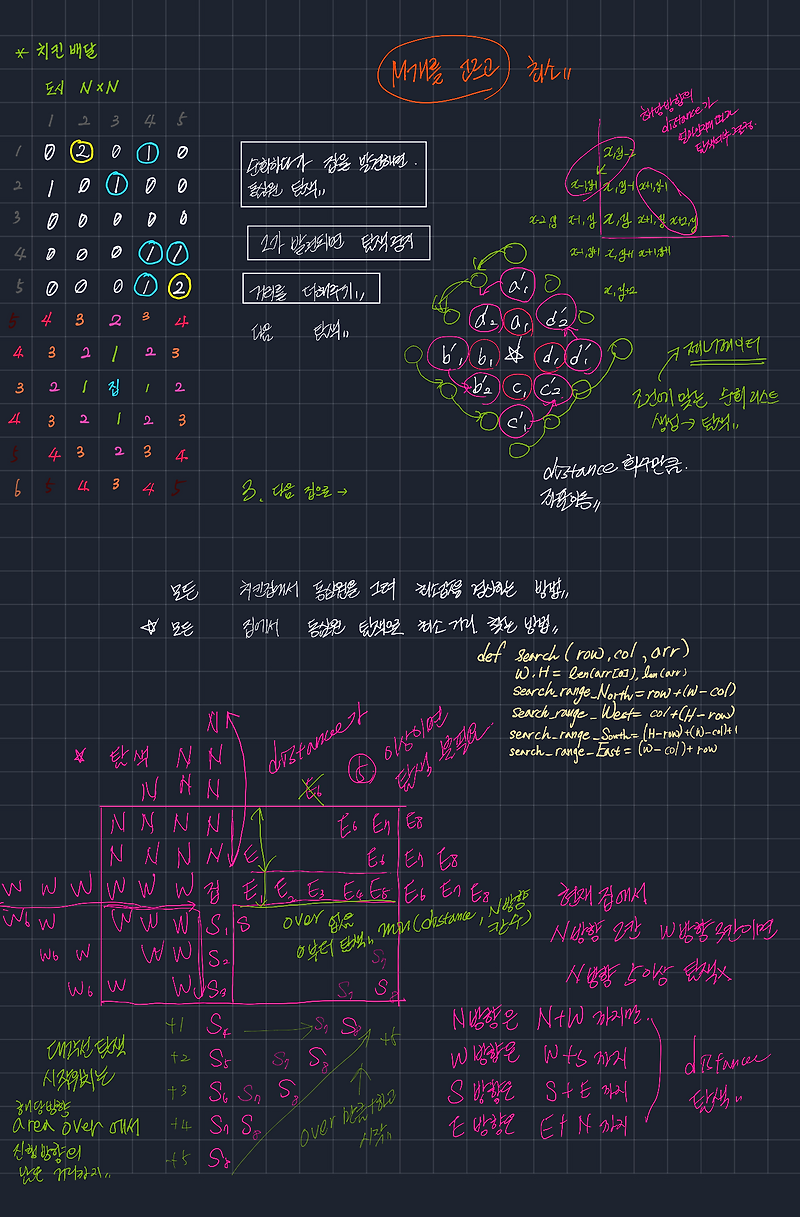 * 치킨 배달
M개를 고르고 최소
도시 N×N
1 2 3 4 5
1 0 2 0 1 0
2 1 0 1 0 0
3 0 0 0 0 0
4 0 0 0 1 1
5 0 0 0 1 2
5 4 3 2 3 4
4 3 2 1 2 3
3 2 1 집 1 2
4 3 2 1 2 3
5 4 3 2 3 4
6 5 4 3 4 5
순회하다가 집을 발견하면
동심원 탐색
1가 발견되면 탐색중지
거리를 더해주기
다음 탐색
3. 다음 집으로 →
해당방향의
distance가
x, y-2
x-1, y-1 x, y-1 x+1, y-1
x-2, y x-1, y x, y x+1, y x+2, y
x-1, y+1 x, y+1 x+1, y+1
x, y+2
a'1
d'2 a1 d'2
b'1 b1 ☆ d1 d'1
b'2 c1 c'2
c'1
→ 제너레이터
조건에 맞는 순회 리스트
생성 → 탐색
distance 횟수만큼
좌표이동
모든 치킨집에서 동심원을 그려 최소값을 갱신하는 방법
☆ 모든 집에서 동심원 탐색으로 최소 거리 찾는 방법
def search(row, col, arr)
W.H = len(arr[0]), len(arr)
search_range_North = row+(W-col)
search_range_West = col+(H-row)
search_range_South = (H-row)+(W-col)+1
search_range_East = (W-col)+row
☆ 탐색
distance가 5 이상이면
탐색 불필요
N
N N
N N N
E6
N N N N E6 E7 E8
N N N N E E6 E7 E8
W W W W W W 집 E1 E2 E3 E4 E5 E6 E7 E8
W6 W W W W S1 S
W6 W W W S2 S7
W6 W W S3 S7 S8
over 없음
0부터 탐색 min(distance, N방향 칸수)
+1 S4 → S7 S8
+2 S5 S7 S8
+3 S6 S7 S8
+4 S7 S8
+5 S8
+5
대각선 탐색
시작위치는
해당방향
area over에서
진행방향의
남은 거리까지
over 만큼+하고
시작
현재 집에서
N방향 2칸 W방향 3칸이면
N방향 5이상 탐색x
N방향은 N+W 까지만
W방향은 W+S 까지
S방향은 S+E 까지
E방향은 E+N 까지
distance
탐색